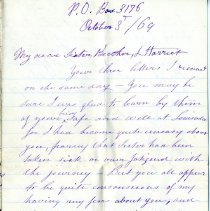 P.O. Box 3176
October 3d/69
My dear Sister Brother & Harriet
Yours three letters I received
on the same day - You may be
sure I was glad to learn by them
of your safe and well at
for I had become quite uneasy about
you, fearing that Sister had been
taken sick or was fatigued with
the journey But you all appear
to be quite unconscious of my
having any fear about you, and